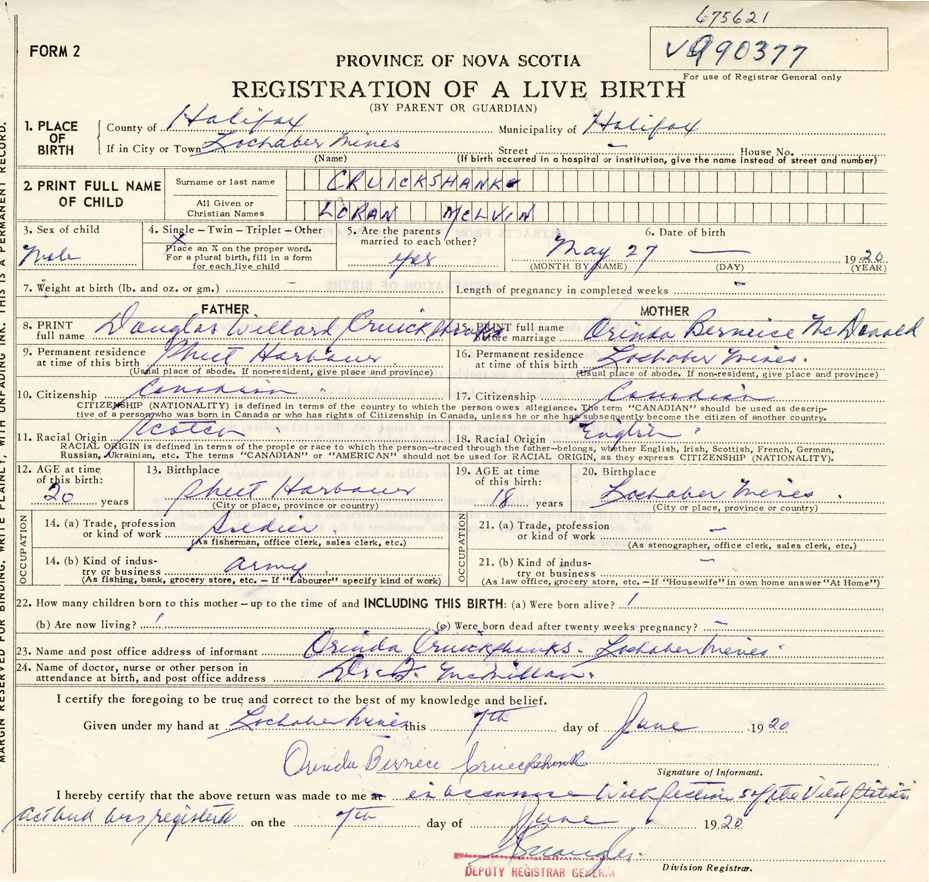 675621
FORM 2
V990377
PROVINCE OF NOVA SCOTIA
For use of Registrar General only
REGISTRATION OF A LIVE BIRTH
(BY PARENT OR GUARDIAN)
1. PLACE OF BIRTH
County of Halifax Municipality of Halifax
If in City or Town Lochaber Mines Street – House No.
(Name) (If birth occurred in a hospital or institution, give the name instead of street and number)
2. PRINT FULL NAME OF CHILD
Surname or last name CRUICKSHANK
All Given or Christian Names LORAN MELVIN
3. Sex of child
Male
4. Single – Twin – Triplet – Other
X
Place an X on the proper word.
For a plural birth, fill in a form
for each live child
5. Are the parents married to each other?
yes
6. Date of birth
May 27 — 1920
(MONTH BY NAME) (DAY) (YEAR)
7. Weight at birth (lb. and oz. or gm.) – Length of pregnancy in completed weeks –
FATHER
MOTHER
8. PRINT full name Douglas Willard Cruickshanks
15. PRINT full name before marriage Orinda Berneice McDonald
9. Permanent residence at time of this birth Sheet Harbour
(Usual place of abode. If non-resident, give place and province)
16. Permanent residence at time of this birth Lochaber Mines.
(Usual place of abode. If non-resident, give place and province)
10. Citizenship Canadian
17. Citizenship Canadian
CITIZENSHIP (NATIONALITY) is defined in terms of the country to which the person owes allegiance. The term "CANADIAN" should be used as descrip-
tive of a person who was born in Canada or who has rights of Citizenship in Canada, unless he or she has subsequently become the citizen of another country.
11. Racial Origin Scotch
18. Racial Origin English
RACIAL ORIGIN is defined in terms of the people or race to which the person–traced through the father–belongs, whether English, Irish, Scottish, French, German,
Russian, Ukrainian, etc. The terms "CANADIAN" or "AMERICAN" should not be used for RACIAL ORIGIN, as they express CITIZENSHIP (NATIONALITY).
12. AGE at time of this birth:
20 years
13. Birthplace
Sheet Harbour
(City or place, province or country)
19. AGE at time of this birth:
18 years
20. Birthplace
Lochaber Mines.
(City or place, province or country)
OCCUPATION
14. (a) Trade, profession or kind of work Soldier
(As fisherman, office clerk, sales clerk, etc.)
14. (b) Kind of indus-try or business army.
(As fishing, bank, grocery store, etc. – If "Labourer" specify kind of work)
OCCUPATION
21. (a) Trade, profession or kind of work –
(As stenographer, office clerk, sales clerk, etc.)
21. (b) Kind of indus-try or business –
(As law office, grocery store, etc.–If "Housewife" in own home answer "At Home")
22. How many children born to this mother – up to the time of and INCLUDING THIS BIRTH: (a) Were born alive? 1
(b) Are now living? 1 (c) Were born dead after twenty weeks pregnancy? –
23. Name and post office address of informant Orinda Cruickshanks. Lochaber Mines.
24. Name of doctor, nurse or other person in
attendance at birth, and post office address McMillan.
I certify the foregoing to be true and correct to the best of my knowledge and belief.
Given under my hand at Lochaber Mines this 7th day of June 1920
Orinda Berniece Cruickshank
Signature of Informant.
I hereby certify that the above return was made to me of the Vital Statistics
act and was registered on the 7th day of June 1920
DEPUTY REGISTRAR GENERAL
Division Registrar.
MARGIN RESERVED FOR BINDING. WRITE PLAINLY, WITH UNFADING INK. THIS IS A PERMANENT RECORD.